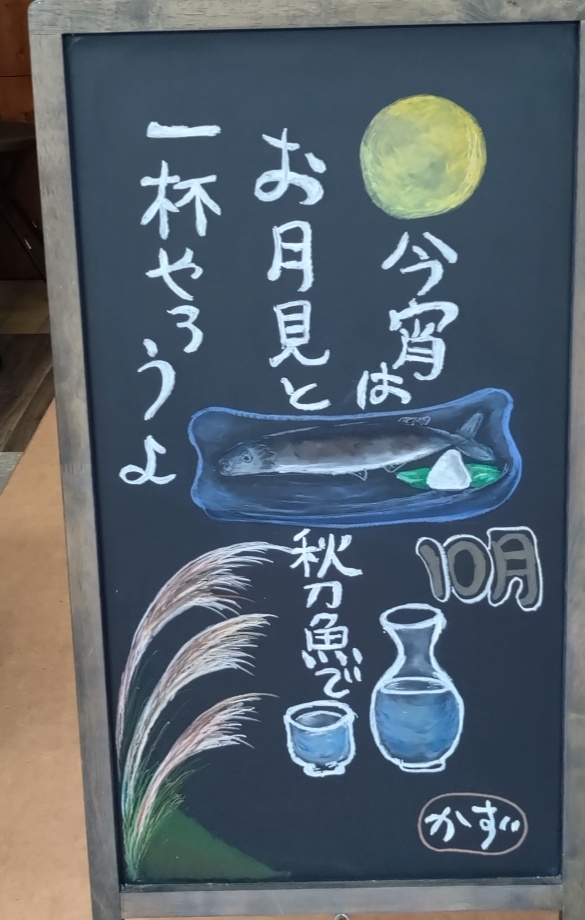 今宵は
お月見と
秋刀魚で
一杯やろうよ
10月
かず